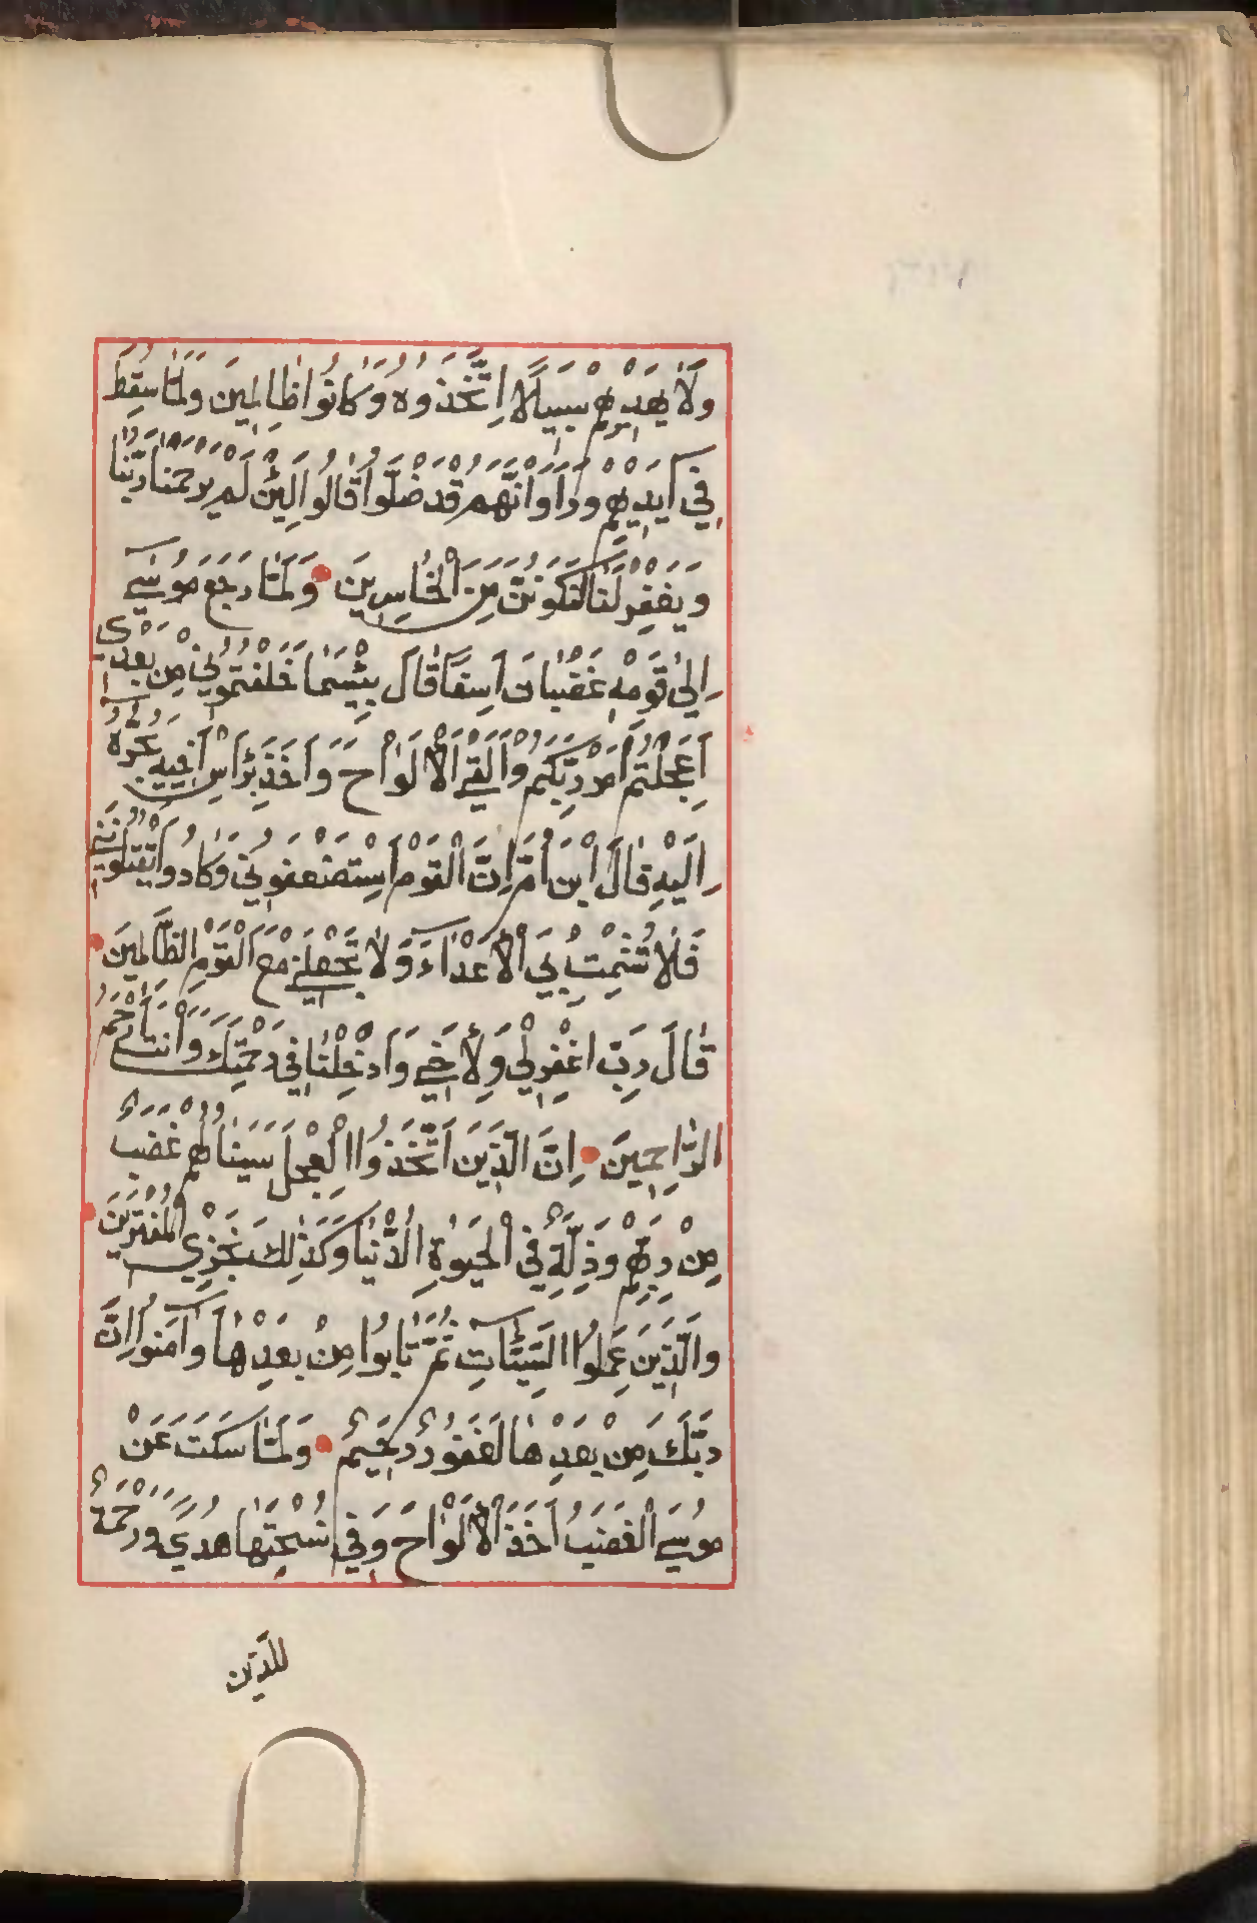 وَلَا يَهْدِيهِمْ سَبِيلًا اِتَّخَذُوهُ وَكَانُوا ظَالِمِينَ وَلَمَّا سُقِطَ
فِي اَيْدِيهِمْ وَرَاَوْا اَنَّهُمْ قَدْ ضَلُّوا قَالُوا لَئِنْ لَمْ يَرْحَمْنَا رَبُّنَا
وَيَغْفِرْ لَنَا لَنَكُونَنَّ مِنَ الْخَاسِرِينَ وَلَمَّا رَجَعَ مُوسَى
اِلَى قَوْمِهِ غَضْبَانَ اَسِفًا قَالَ بِئْسَمَا خَلَفْتُمُونِي مِنْ بَعْدِي
اَعَجِلْتُمْ اَمْرَ رَبِّكُمْ وَاَلْقَى الْاَلْوَاحَ وَاَخَذَ بِرَاْسِ اَخِيهِ يَجُرُّهُ
اِلَيْهِ قَالَ ابْنَ اُمَّ اِنَّ الْقَوْمَ اسْتَضْعَفُونِي وَكَادُوا يَقْتُلُونَنِي
فَلَا تُشْمِتْ بِيَ الْاَعْدَاءَ وَلَا تَجْعَلْنِي مَعَ الْقَوْمِ الظَّالِمِينَ
قَالَ رَبِّ اغْفِرْ لِي وَلِاَخِي وَاَدْخِلْنَا فِي رَحْمَتِكَ وَاَنْتَ اَرْحَمُ
الرَّاحِمِينَ اِنَّ الَّذِينَ اتَّخَذُوا الْعِجْلَ سَيَنَالُهُمْ غَضَبٌ
مِنْ رَبِّهِمْ وَذِلَّةٌ فِي الْحَيَوةِ الدُّنْيَا وَكَذَلِكَ نَجْزِي الْمُفْتَرِينَ
وَالَّذِينَ عَمِلُوا السَّيِّئَاتِ ثُمَّ تَابُوا مِنْ بَعْدِهَا وَآمَنُوا اِنَّ
رَبَّكَ مِنْ بَعْدِهَا لَغَفُورٌ رَحِيمٌ وَلَمَّا سَكَتَ عَنْ
مُوسَى الْغَضَبُ اَخَذَ الْاَلْوَاحَ وَفِي نُسْخَتِهَا هُدًى وَرَحْمَةٌ
للذين